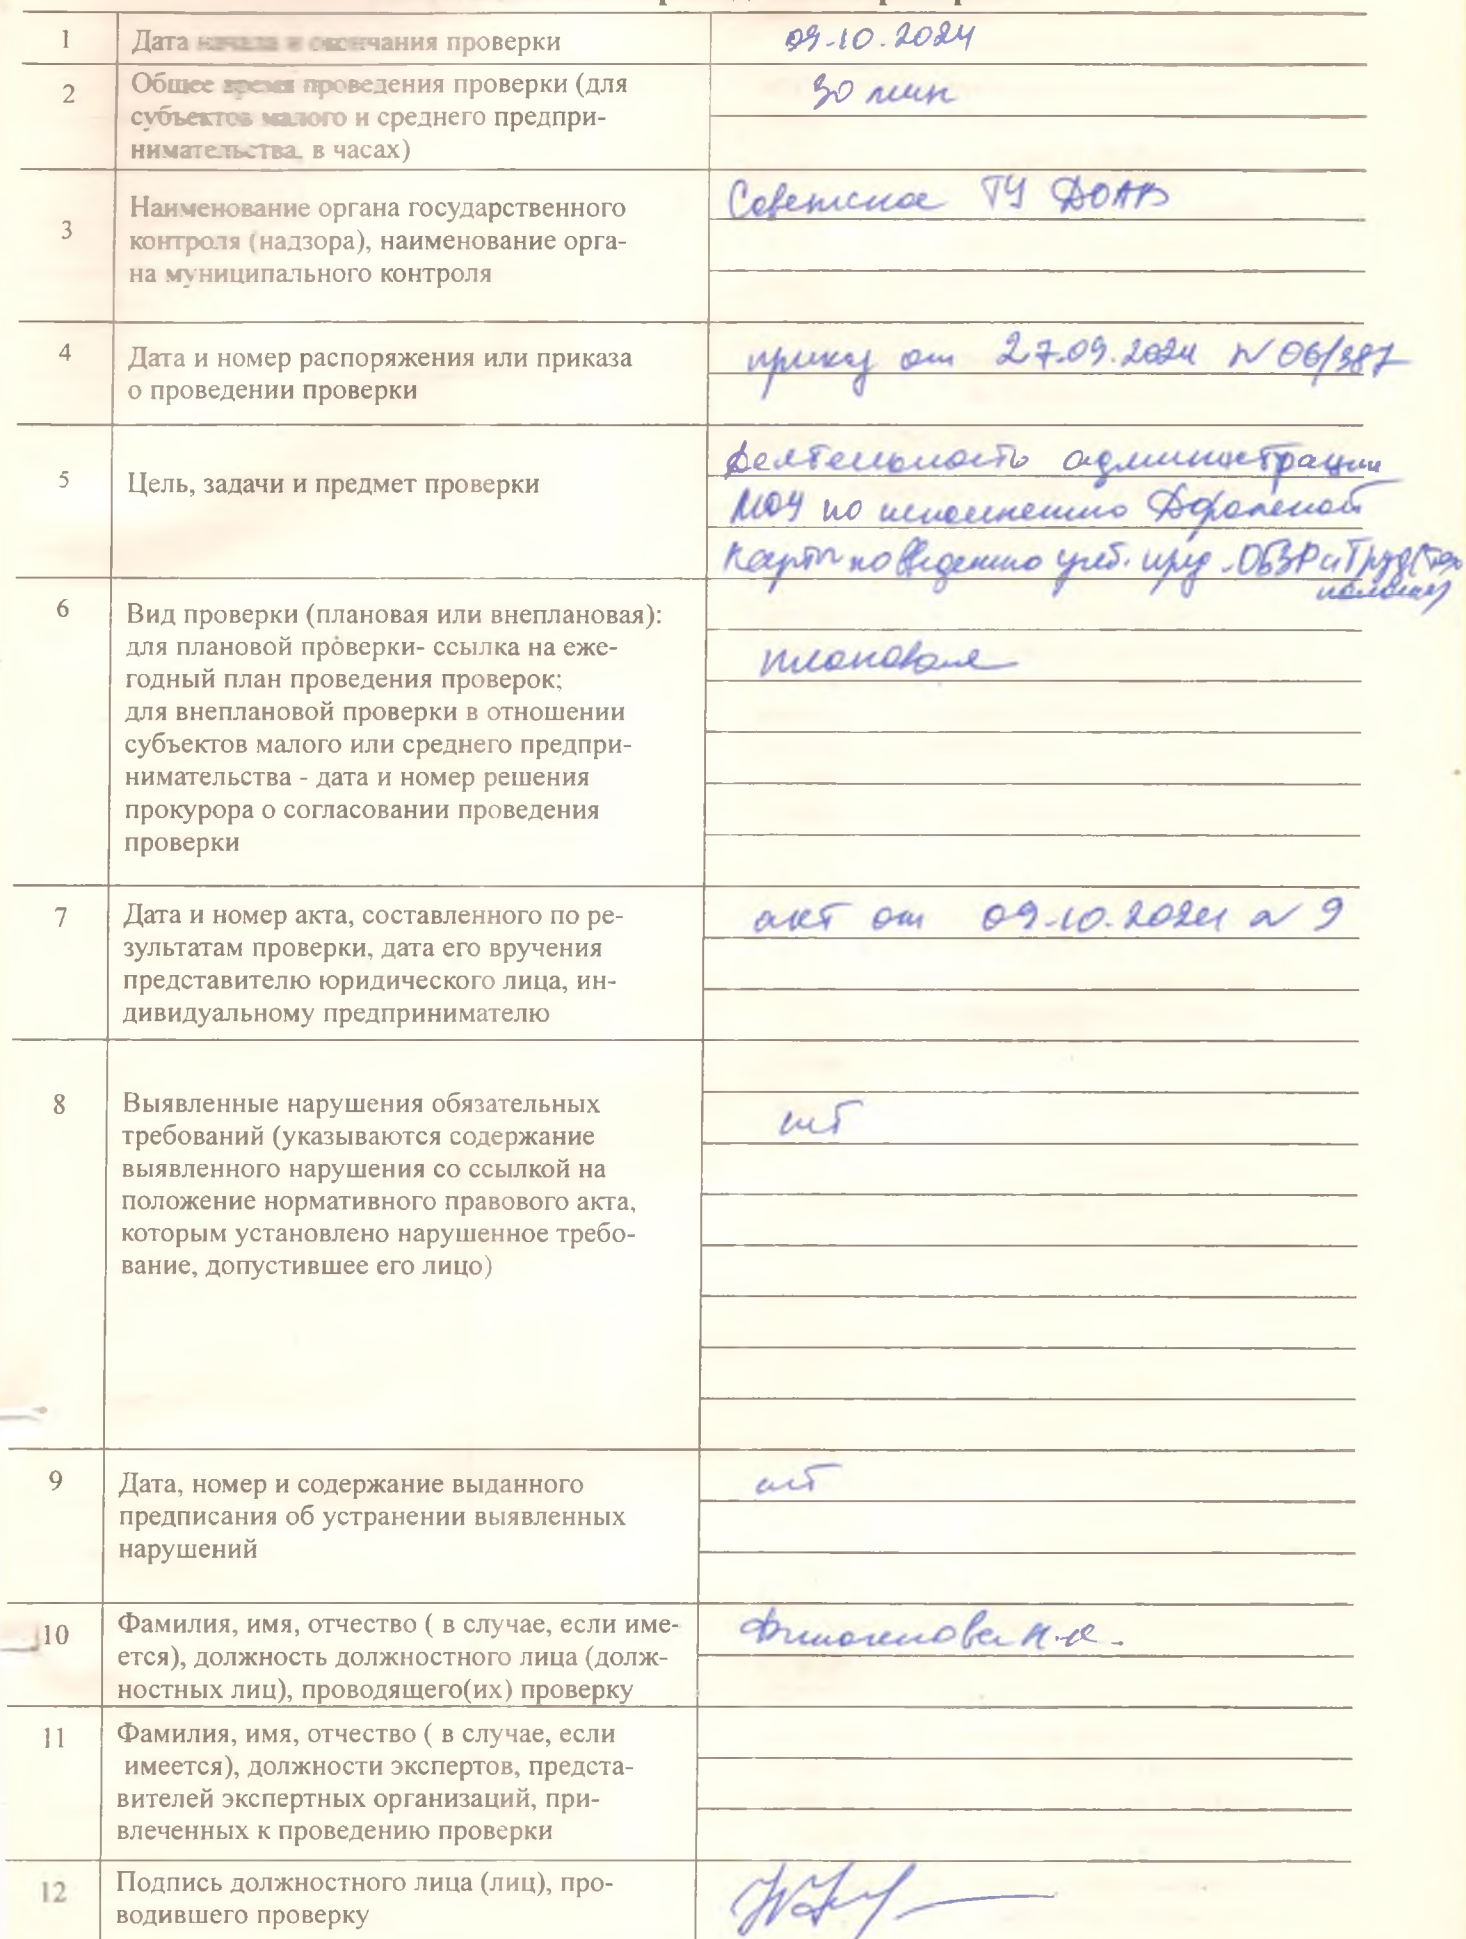 1 Дата начала и окончания проверки 09.10.2024
2 Общее время проведения проверки (для 30 мин
субъектов малого и среднего предпри-
нимательства, в часах)
3 Наименование органа государственного Советское ТУ ДОАВ
контроля (надзора), наименование орга-
на муниципального контроля
4 Дата и номер распоряжения или приказа приказ от 27.09.2024 № 06/387
о проведении проверки
5 Цель, задачи и предмет проверки Деятельность администрации
МОУ по исполнению Дорожной
карты по введению учеб. пред. ОБЗР и Труд (тех
нология)
6 Вид проверки (плановая или внеплановая):
для плановой проверки- ссылка на еже- плановая
годный план проведения проверок;
для внеплановой проверки в отношении
субъектов малого или среднего предпри-
нимательства - дата и номер решения
прокурора о согласовании проведения
проверки
7 Дата и номер акта, составленного по ре- акт от 09.10.2024 № 9
зультатам проверки, дата его вручения
представителю юридического лица, ин-
дивидуальному предпринимателю
8 Выявленные нарушения обязательных нет
требований (указываются содержание
выявленного нарушения со ссылкой на
положение нормативного правового акта,
которым установлено нарушенное требо-
вание, допустившее его лицо)
9 Дата, номер и содержание выданного нет
предписания об устранении выявленных
нарушений
10 Фамилия, имя, отчество ( в случае, если име-
ется), должность должностного лица (долж-
ностных лиц), проводящего(их) проверку
11 Фамилия, имя, отчество ( в случае, если
имеется), должности экспертов, предста-
вителей экспертных организаций, при-
влеченных к проведению проверки
12 Подпись должностного лица (лиц), про-
водившего проверку